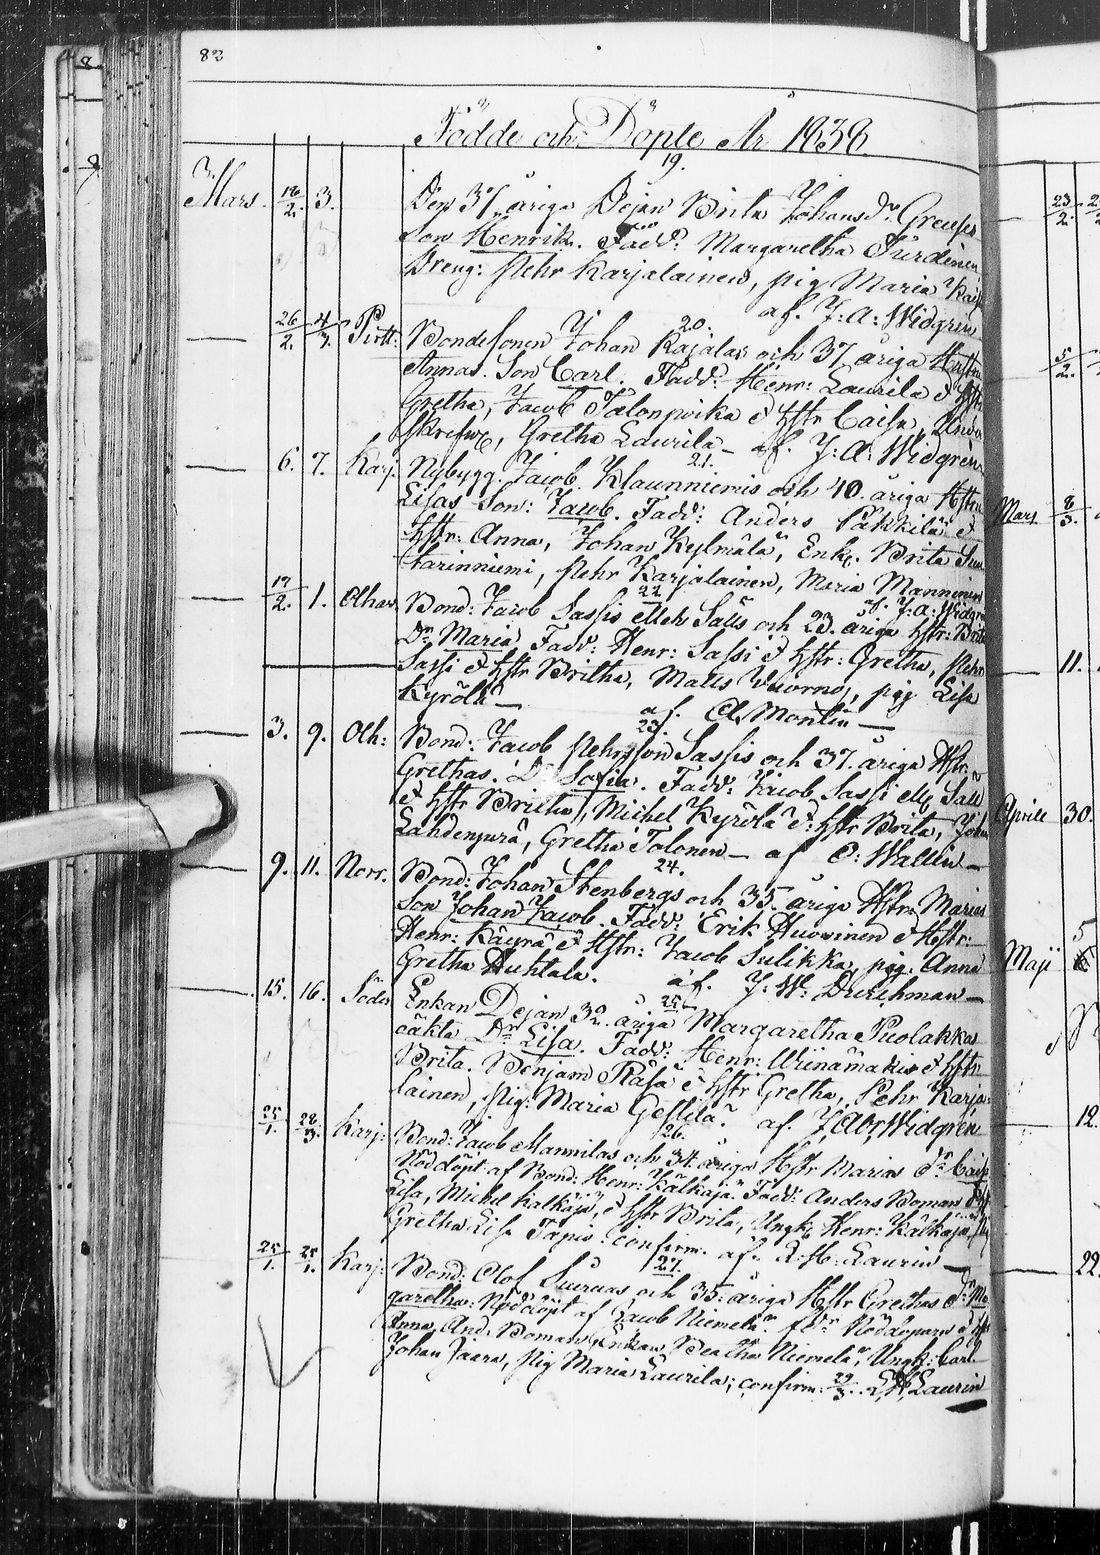 82
Födde och Döpte År 1838.
19.
Mars. 18/2. 3. Den 37 åriga Pejan Brita Johansdr
Son Henrik. Fadd: Margaretha
Dreng: Pehr Karjalainen, pig Maria
af. J: A: Widgren
20.
26/2. 4/3. Piett: Bondesonen Johan Kajalas och 37 åriga Hustru
Annas Son Carl. Fadd: Henr: Laurila & hstr
Gretha, Jacob Talonpoika & hstr Caisa,
Gretha Laurila - af. J: A: Widgren
21.
6. 7. Karj. Nybygg. Jacob Klaunniemis och 40 åriga Hstru
Lisas Son: Jacob. Fadd: Anders Päkkilä &
hstr: Anna, Johan Kylmälä, Enk. Brita
tarinniemi, Pehr Karjalainen, Maria Manninen
af. J: A: Widgren
22
17/2. 1. Olhav. Bond: Jacob Sassis och 23. åriga hstr: Brita
Dr Maria Fadd: Henr: Sassi & hstr: Gretha, Pehr
Sassi & hstr Britha, Matts Vuorno, pig Lisa
Kyrölä - af. A. Montin -
23.
3. 9. Olh: Bond: Jacob Pehrsson Sassis och 37. åriga Hstr
Grethas. Dr Sofia. Fadd: Jacob Sassi
& hstr Britha, Michel Kyrölä & hstr Brita, Joh
Lahdenperä, Gretha Tolonen - af C: Wallin -
24.
9. 11. Norr. Bond: Johan Stenbergs och 35. åriga Hstr Marias
Son Johan Jacob. Fadd: Erik Huovinen & Hstr:
Henr: Käyrä & Hstr: Jacob Sulikka, pig. Anna
Gretha Huhtala. af. J: W: Durchman -
25
15. 16. Söder Enkan Pejan 32. åriga Margaretha Puolakkas
oäkta Dr Lisa. Fadd: Henr: Wiinämäki & hstr
Brita. Benjam Räsä & hstr Gretha, Pehr Karja-
lainen, Pig: Maria Gestilä. af. J. Abr. Widgren
26.
25/1. 28/3. Karj: Bond: Jacob Mannilas och 34 åriga Hstr Marias Dr Caisa
Nöddöpt af Bond: Henr: Kälkäjä. Fadd: Anders Boman & hstr
Lisa, Michel Kalkäjä, & hstr Brita, Ungk. Henr: Kälkäjä,
Gretha Lisa Tapio: confirm. af. L. H: Laurin -
27.
25/1. 25/1. Karj: Bond: Olof Suuruas och 35: åriga Hstr Grethas Dr Ma
garetha: Nöddöpt af Jacob Niemelä fdr Nöddöparn & hstr
Anna, And. Boman, Enkan Beatha Niemelä, Ungk: Carl
Johan Jaara, Pig Maria Laurila; confirm: 29/3. L. H. Laurin
23/2.
5/2.
Mars 8/3.
11.
Aprill 30.
Maji 5
12.
22.